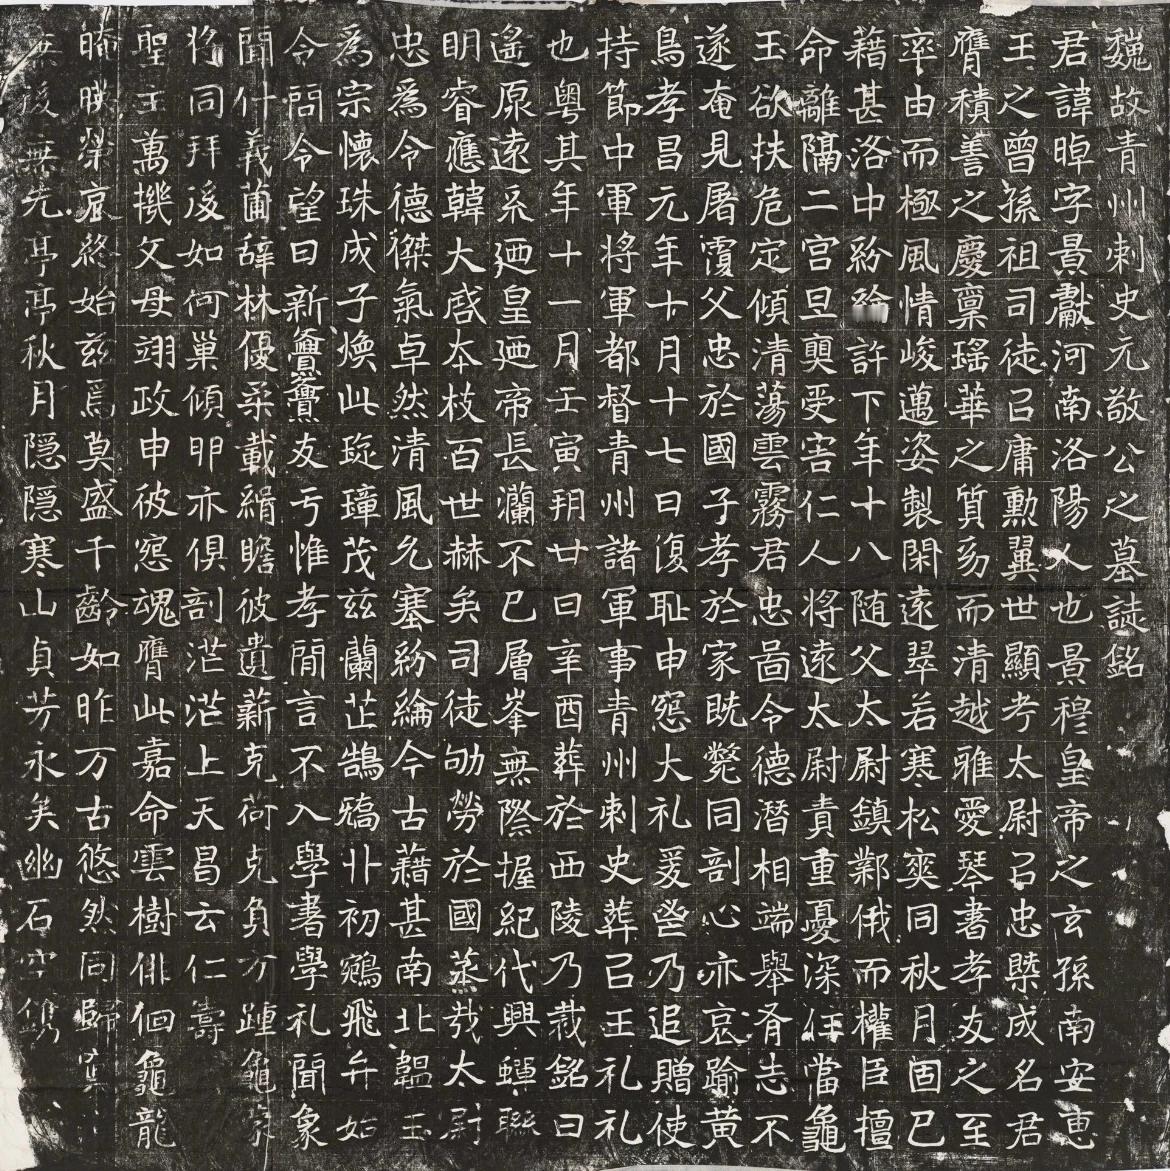 魏故青州刺史元敬公之墓誌銘
君諱晫字景獻河南洛陽人也景穆皇帝之玄孫南安惠
王之曾孫祖司徒召庸勲翼世顯考太尉召忠槩成名君
膺積善之慶稟瑤華之質易而清越雅愛琴書孝友之至
率由而極風情峻邁姿製閑遠翠若寒松奕同秋月固已
藉甚洛中紛綸許下年十八随父太尉鎮鄴俄而權臣擅
命離隔二宫旦奭受害仁人將遠太尉責重憂深任當龜
玉欲扶危定傾清蕩雲霧君忠啚令德潜相端舉脀志不
遂奄見屠覆父忠於國子孝於家既斃同剖心亦哀踰黄
鳥孝昌元年十月十七日復耻申寃大礼爰啓乃追贈使
持節中軍將軍都督青州諸軍事青州刺史葬召王礼礼
也粤其年十一月壬寅朔廿日辛酉葬於西陵乃裁銘曰
遙原遠系迺皇迺帝長瀾不已層峯無際握紀代興蟬聯
明睿應韓大啓夲枝百世赫矣司徒劬勞於國蒸哉太尉
忠爲令德傑氣卓然清風允塞紛綸今古藉甚南北韞玉
爲宗懷珠成子煥此琁璋茂兹蘭芷鵠鷮丱初鵷飛弁始
令問令望日新亹亹友亏惟孝閒言不入學書學礼聞象
聞什義圃辭林優柔載緝瞻彼遺薪克荷克負方踵龜家
將同拜後如何巢傾卵亦俱剖茫茫上天昌云仁壽
聖王萬機父母翊政申彼寃魂膺此嘉命雲樹俳佪龜龍
晻暎榮哀終始兹焉莫盛千齡如昨万古悠然同歸
無後無先亭亭秋月隠隠寒山貞芳永矣幽石空鐫